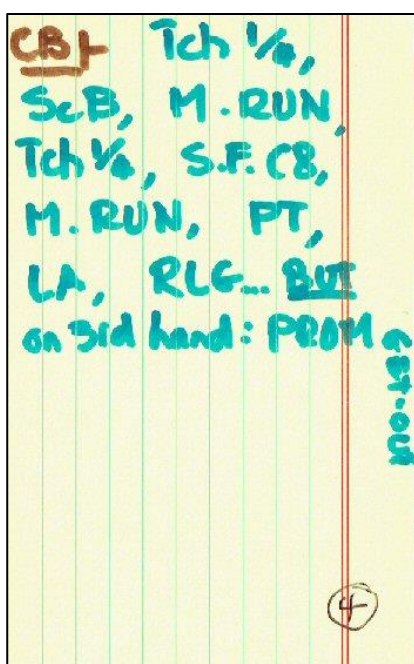 CBL Tch 1/4,
ScB, M.RUN,
Tch 1/4, S.F. C8,
M.RUN, PT,
LA, RLG... BUT
on 3rd hand: PROM
GET-OUT
4